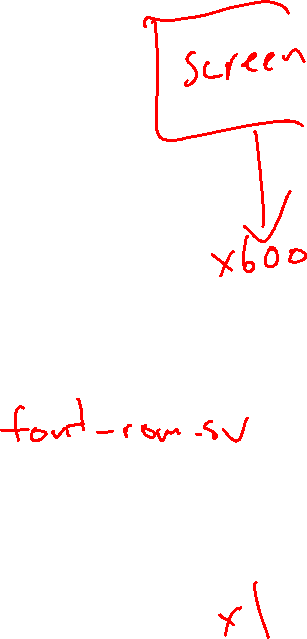 screen
x600
font-rom.sv
x1